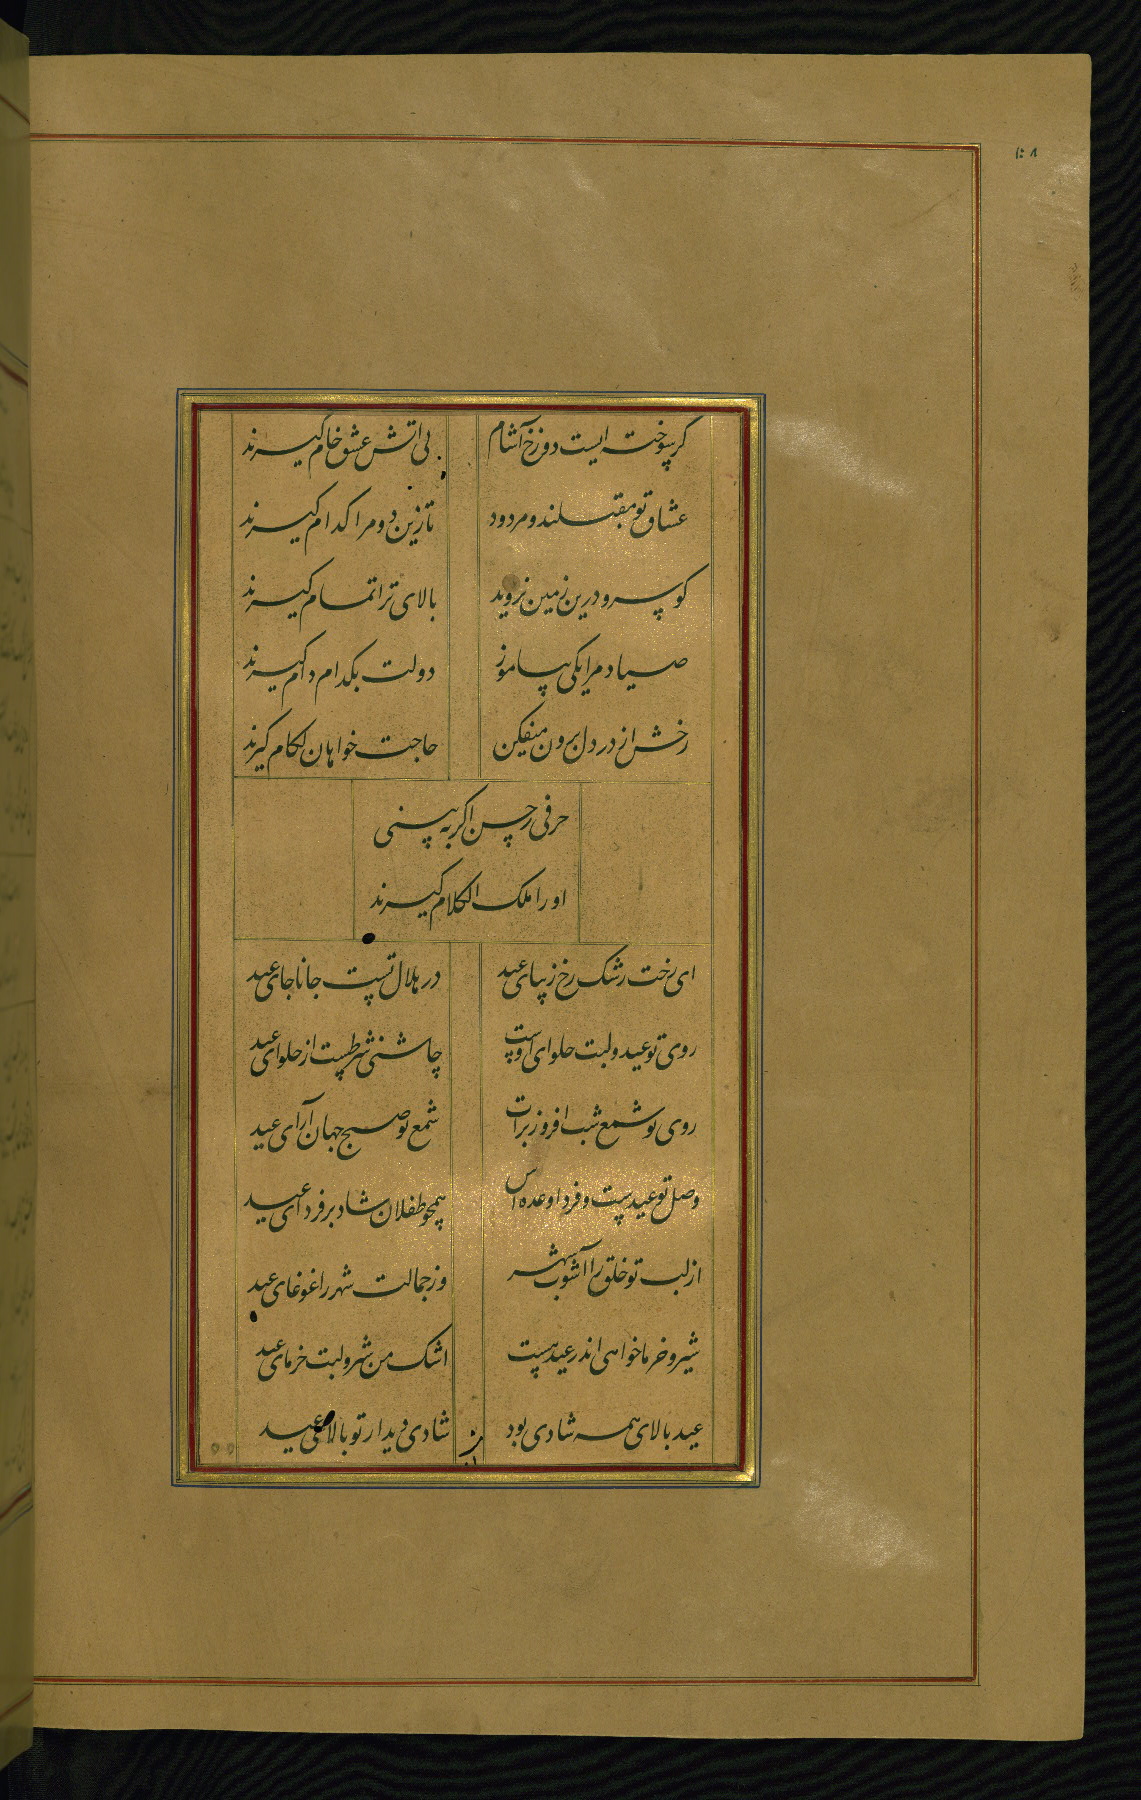 ۱۰۸
گر سوخته ایست دوزخ آشام
بی آتش عشق خام گیرند
عشاق تو مقبلند و مردود
تا زین دو مرا کدام گیرند
کو سرو درین زمین نروید
بالای ترا تمام گیرند
صیاد مرا یکی بیاموز
دولت بکدام دام گیرند
رخش از در دل برون میفکن
حاجت خواهان لکام گیرند
حرفی ز حسن اگر به بینی
او را ملک الکلام گیرند
ای رخت رشک رخ زیبای عید
در هلال تست جانا جای عید
روی تو عید و لبت حلوای اوست
چاشنی شرطست از حلوای عید
روی تو شمع شب افروز برات
شمع تو صبح جهان آرای عید
وصل تو عیدست و فردا وعده اش
همچو طفلان شاد بر فردای عید
از لبت تو خلق را آشوب شهر
وز جمالت شهر را غوغای عید
شیر و خرما خواهی اندر عید هست
اشک من شیر و لبت خرمای عید
عید بالای همه شادی بود
شادی دیدار تو بالای عید